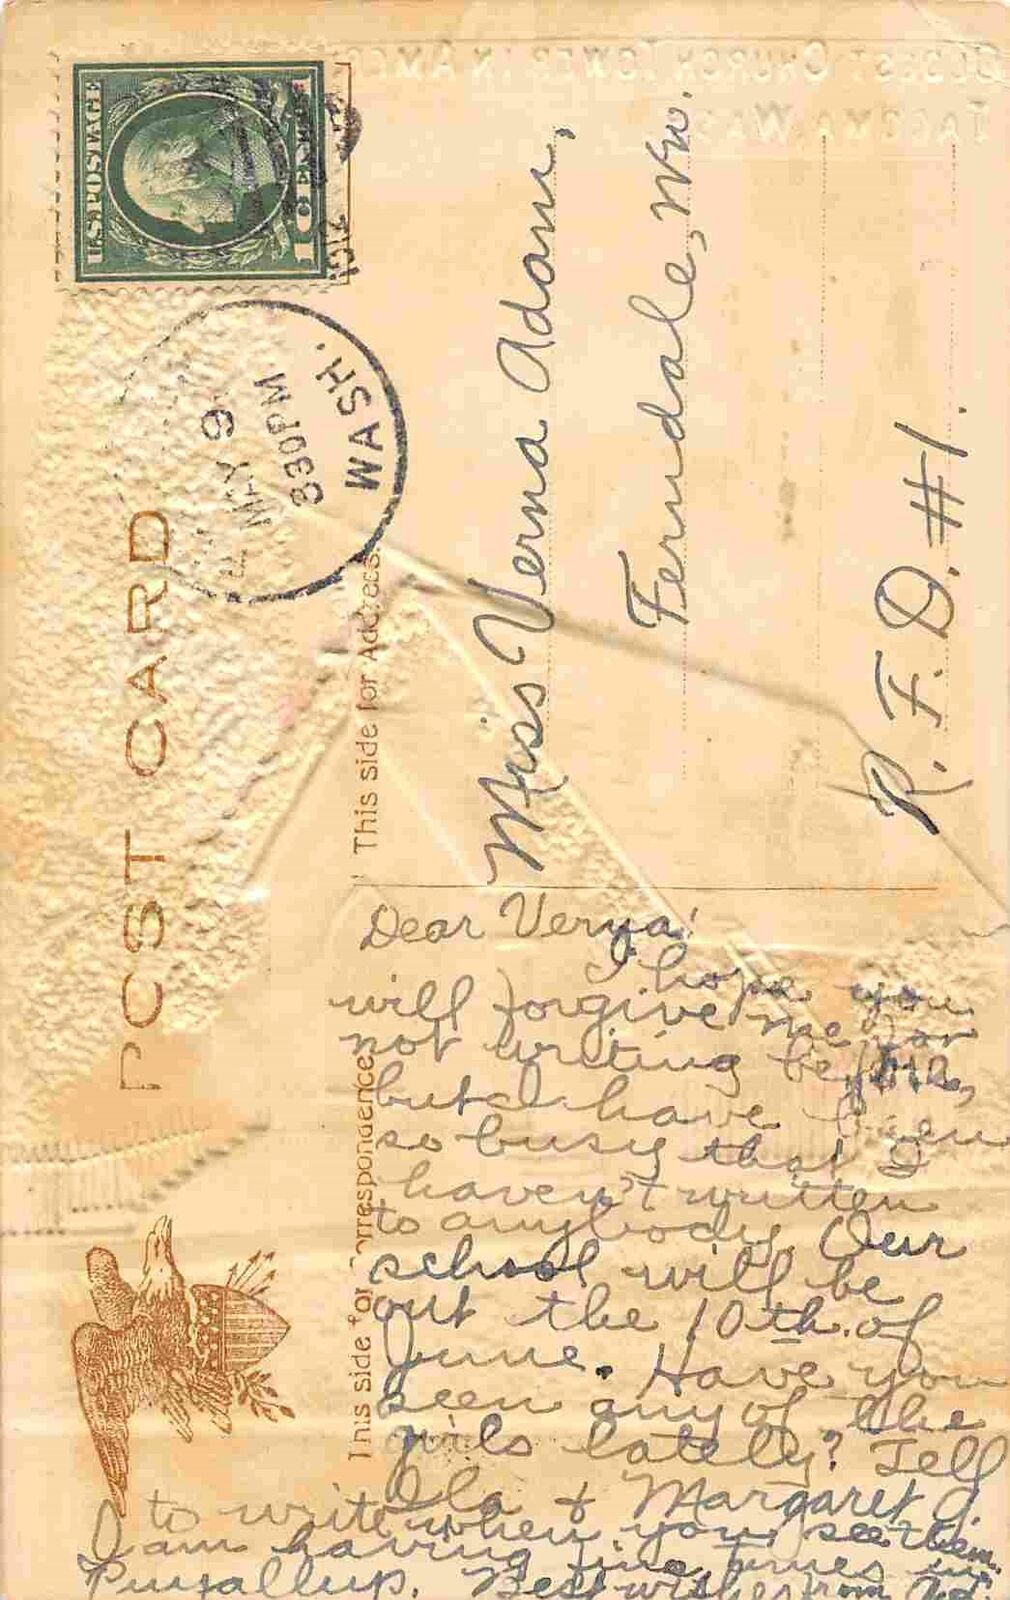 POST CARD
U.S. POSTAGE
1 CENT 1
MAY 9
830PM
WASH.
1912
This side for Address.
Miss Verna Adam,
Ferndale, Wn.
R. F. D. #1.
This side for Correspondence.
Dear Verna:
I hope you
will forgive me for
not writing before,
but I have been
so busy that I
haven't written
to anybody. Our
school will be
out the 10th. of
June. Have you
seen any of the
girls lately? Tell
Ila & Margaret G.
to write when you see them.
I am having fine times in
Puyallup. Best wishes from
OLDEST CHURCH TOWER IN AMERICA
TACOMA, WASH.